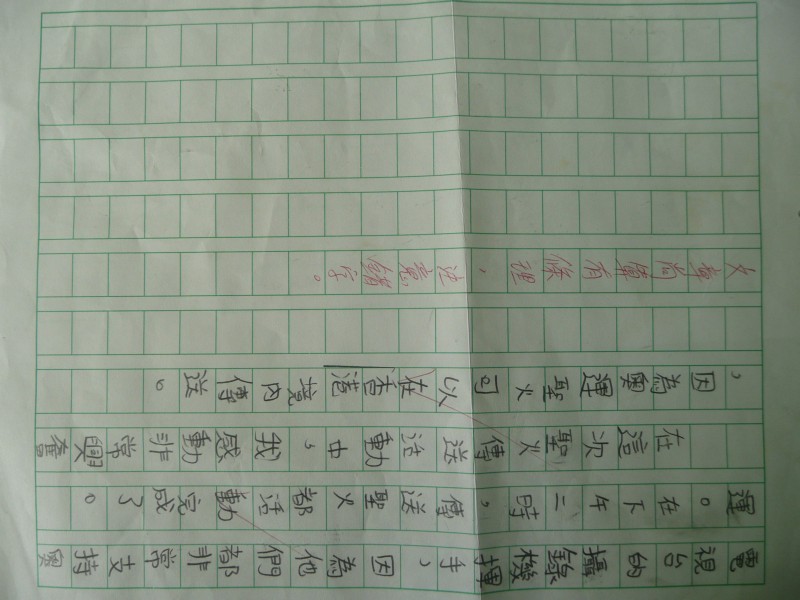 電視台的攝錄機揮手,因為他們都非常支持奧
運。在下午二時,傳送聖火都活動完成了。
在這次聖火傳送活動中,我感動非常興奮
,因為奧運聖火可以在香港境內傳送。
文章尚算有條理,注意錯字。